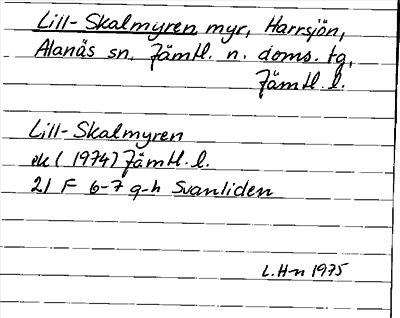 Lill-Skalmyren, myr, Harrsjön,
Alanäs sn. Jämtl. n. doms. tg,
Jämtl. l.
Lill-Skalmyren
ek (1974) Jämtl. l.
21 F 6-7 g-h Svanliden
L. H-n 1975